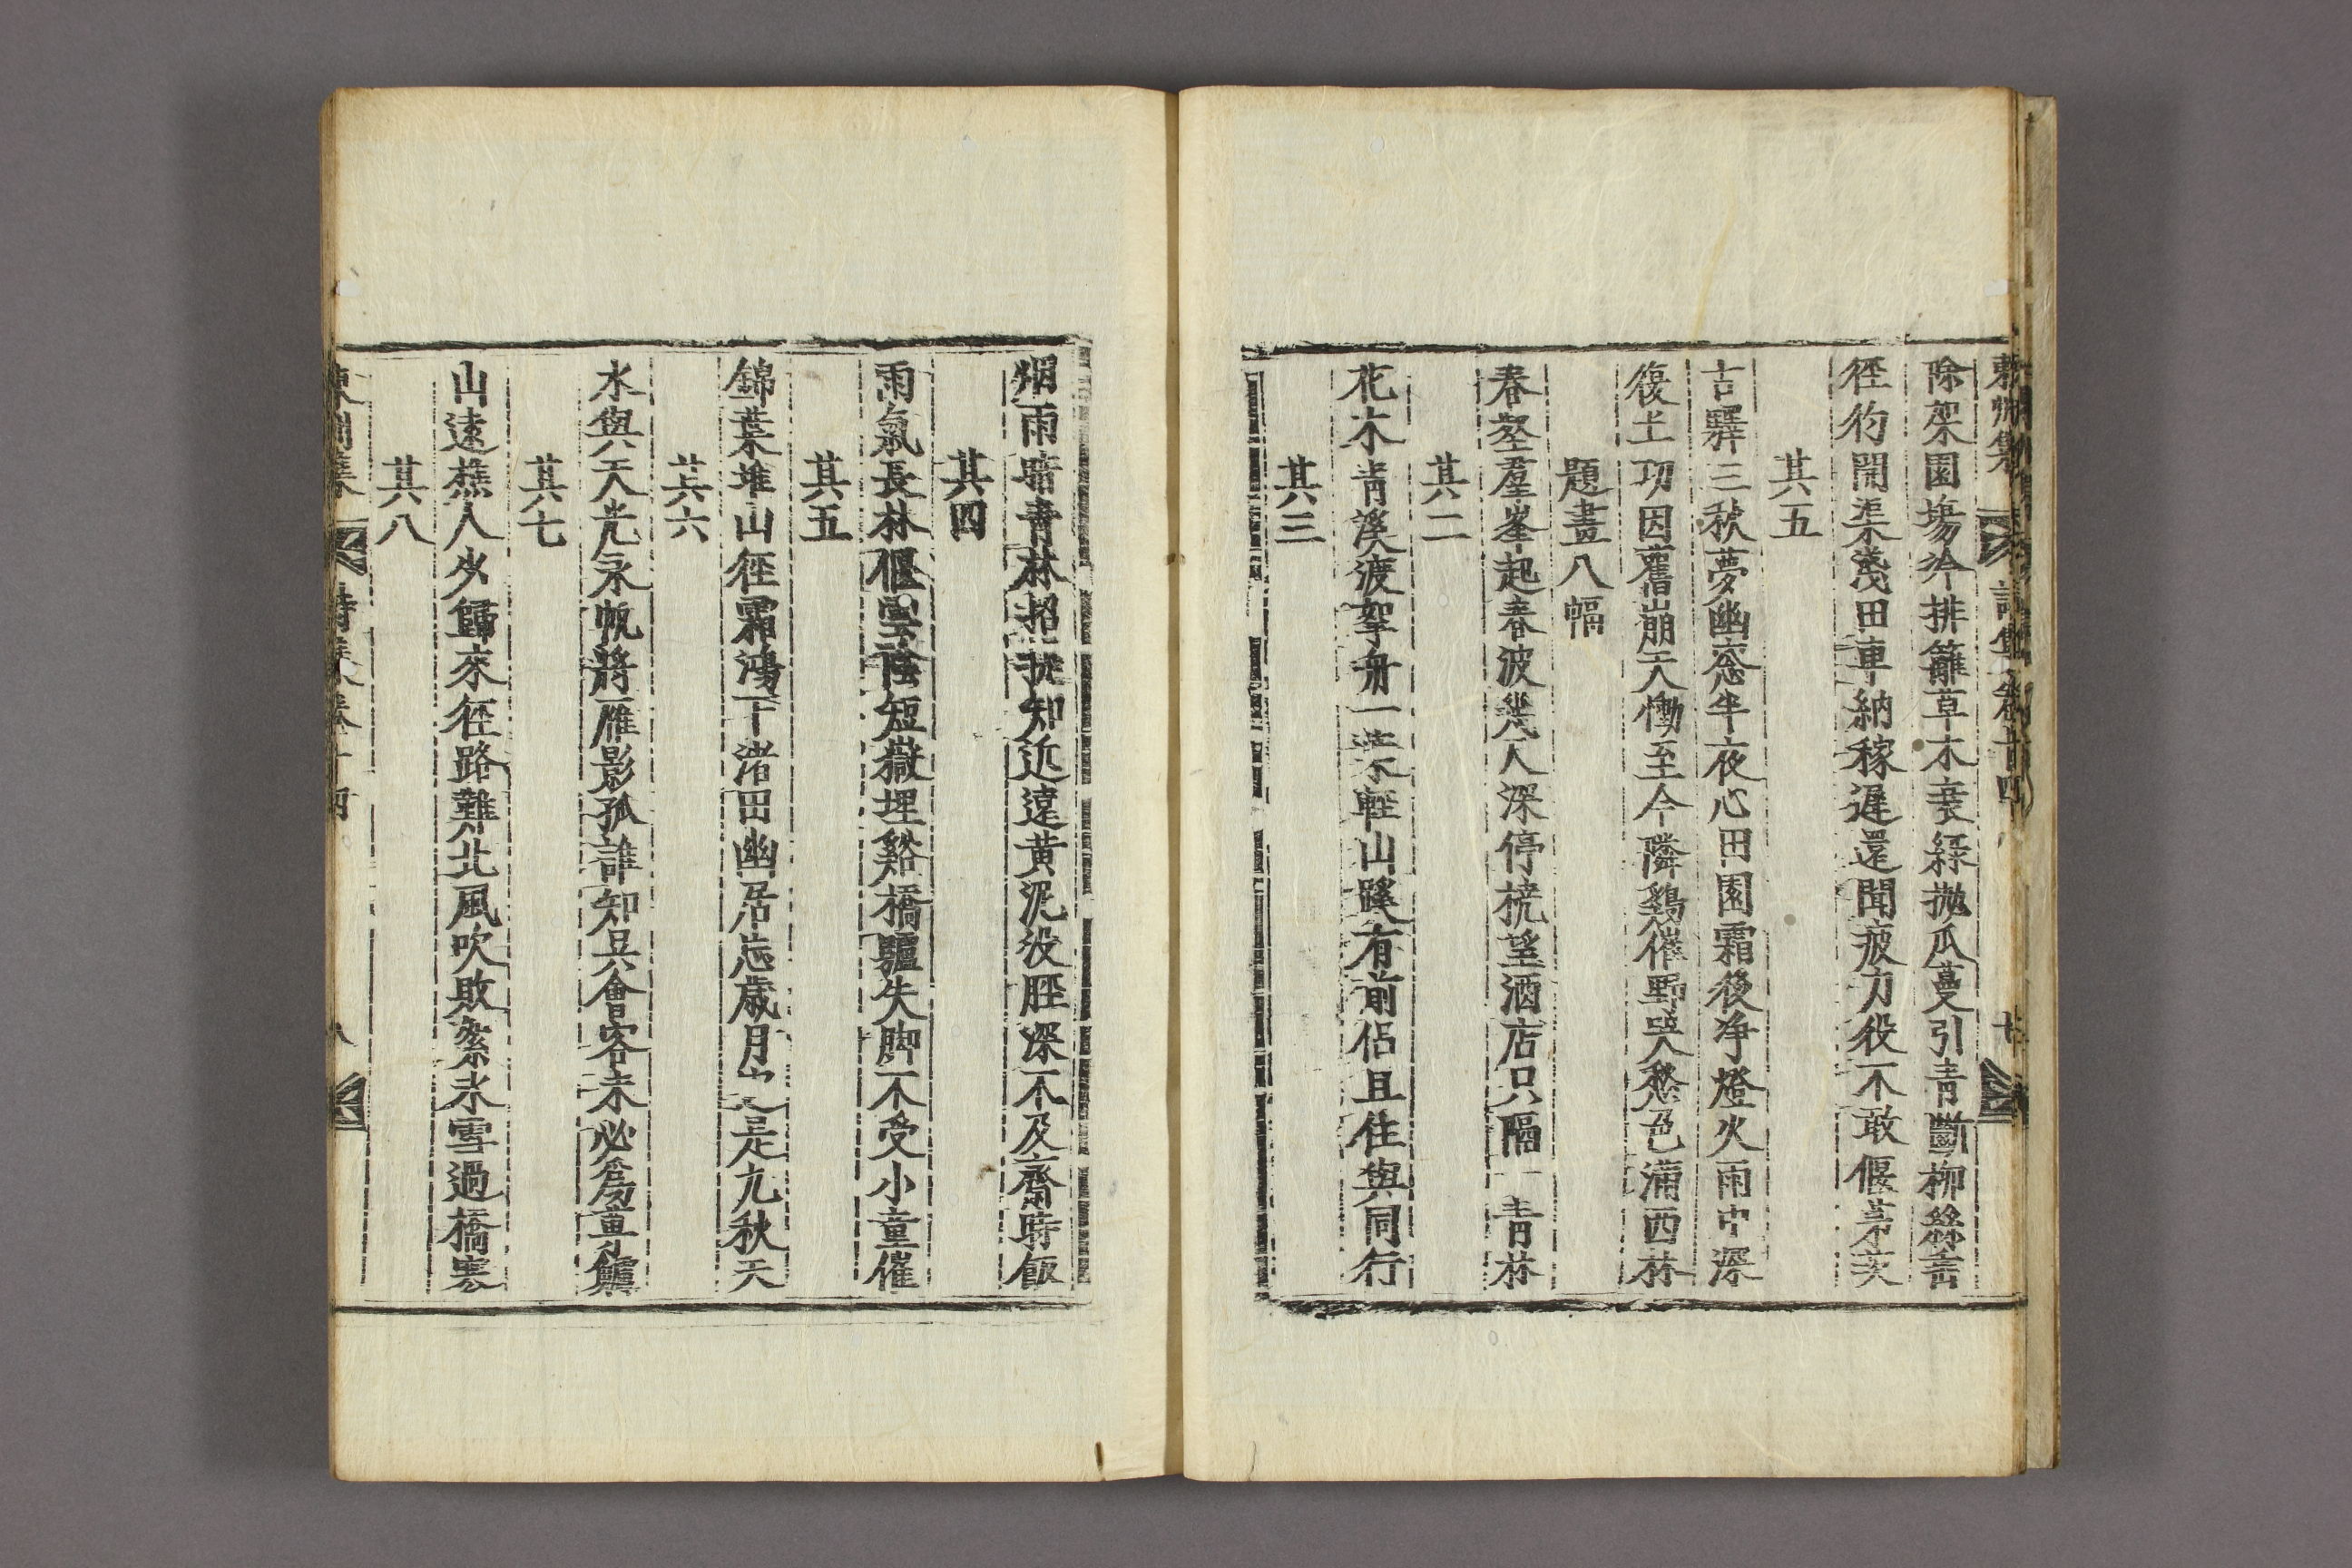 除架園塲冷排籬草木衰綠抛瓜蔓引靑斷柳絲垂
徑彴開渠淺田車納稼遲還聞疲力役不敢偃茅茨
其五
古驛三秋夢幽窓半夜心田園霜後净燈火雨中深
復土功因舊崩天慟至今隣鷄催野哭愁色滿西林
題畫八幅
春壑羣峯起春波幾尺深停橈望酒店只隔一靑林
其二
花木靑溪渡孥舟一葉輕山蹊有前侶且住與同行
其三
烟雨暗靑林招提知近遠黃泥沒脛深不及齋時飯
其四
雨氣長林偃雲陰短嶽埋谿橋驢失脚不受小童催
其五
錦葉堆山徑霜鴻下渚田幽居忘歲月又是九秋天
其六
水與天光永帆將雁影孤誰知吳會客未必爲蓴鱸
其七
山遠樵人少歸來徑路難北風吹敗絮氷雪過橋寒
其八